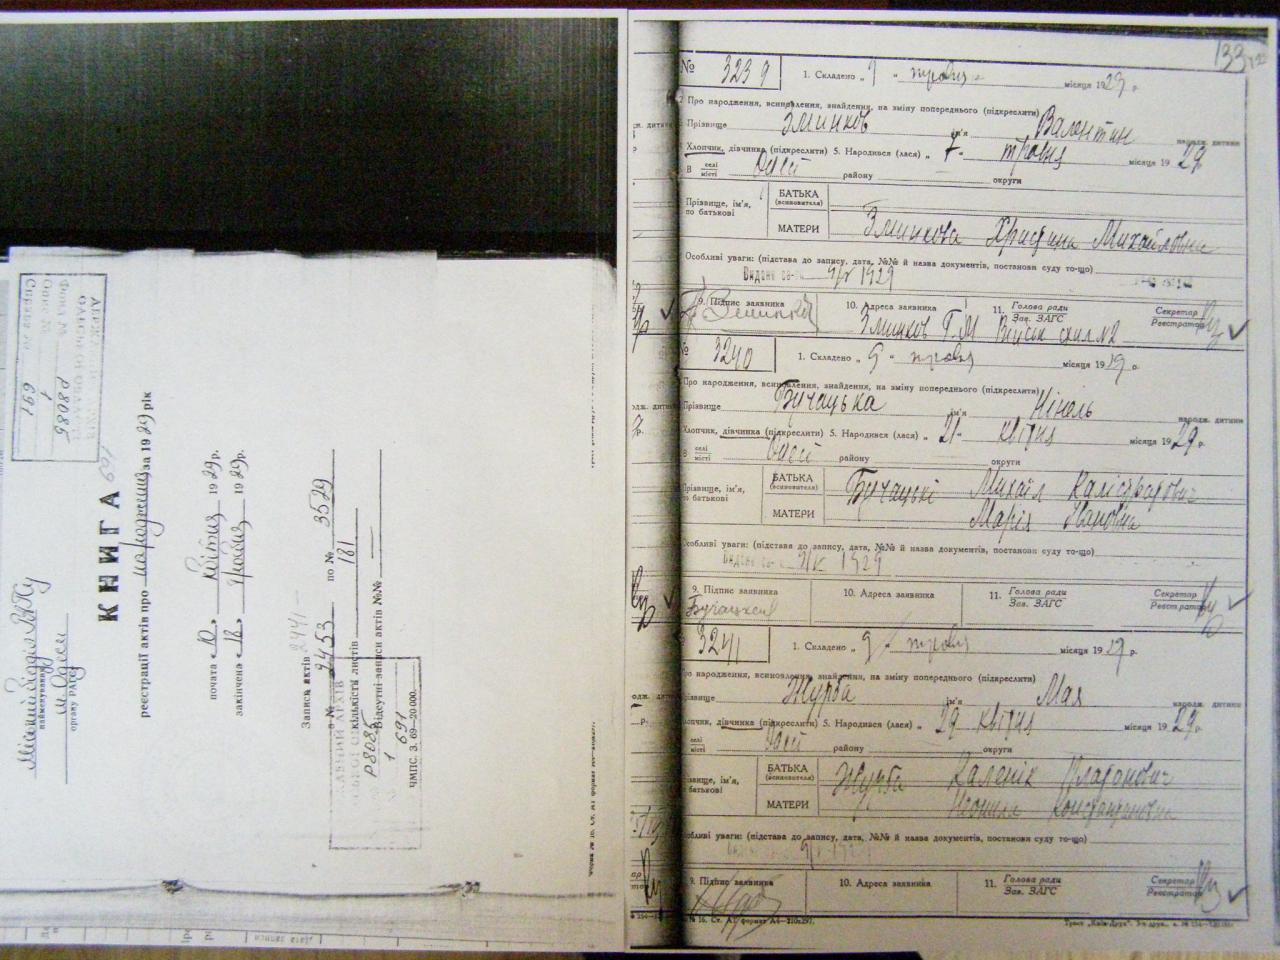 Міський Відділ ЗАГСу
найменування
м. Одеси
органу РАГС
КНИГА
691
реєстрації актів про народження за 1929 рік
почата «10» квітня 1929 р.
закінчена «18» травня 1929 р.
Запись актів
з № 2453 по № 3529
кількість листів 181
Відсутні записи актів №№
Р8085
1
691
ЧМПС. З. 69—20 000.
Фонд № Р8085
Опис № 1
Справа № 691
133
№ 3239
1. Складено „ 9 " травня місяця 1929 р.
2 Про народження, всиновлення, знайдення, на зміну попереднього (підкреслити)
Прізвище Зминков ім'я Валентин народж. дитини
Хлопчик, дівчинка (підкреслити) 5. Народився (лася) „ 7 " травня місяця 1929
В селі місті Одесі району округи
Прізвище, ім'я, по батькові
БАТЬКА (всиновителя)
МАТЕРИ Зминкова Христина Михайловна
Особливі уваги: (підстава до запису, дата, №№ й назва документів, постанови суду то-що)
Видано 1929
9. Підпис заявника
10. Адреса заявника
11. Голова ради Зав. ЗАГС
Секретар Реєстратор
Зминков Г. М
№ 3240
1. Складено „ 9 " травня місяця 1929 р.
Про народження, всиновлення, знайдення, на зміну попереднього (підкреслити)
Прізвище Бучацька ім'я Нінель народж. дитини
Хлопчик, дівчинка (підкреслити) 5. Народився (лася) „ 21 " квітня місяця 1929 р.
В селі місті Одесі району округи
Прізвище, ім'я, по батькові
БАТЬКА (всиновителя) Бучацькі Михайл Калістратович
МАТЕРИ Марія Івановна
Особливі уваги: (підстава до запису, дата, №№ й назва документів, постанови суду то-що)
Видано 1929
9. Підпис заявника
10. Адреса заявника
11. Голова ради Зав. ЗАГС
Секретар Реєстратор
3241
1. Складено „ 9 " травня місяця 1929 р.
Про народження, всиновлення, знайдення, на зміну попереднього (підкреслити)
Прізвище Журба ім'я Мая народж. дитини
Хлопчик, дівчинка (підкреслити) 5. Народився (лася) „ 29 " квітня місяця 1929 р.
селі місті Одесі району округи
Прізвище, ім'я, по батькові
БАТЬКА (всиновителя) Журба Каленік Платонович
МАТЕРИ Неоніла Константиновна
Особливі уваги: (підстава до запису, дата, №№ й назва документів, постанови суду то-що)
9. Підпис заявника
10. Адреса заявника
11. Голова ради Зав. ЗАГС
Секретар Реєстратор
№ 16. Ст. А1 формат А4—210х297.